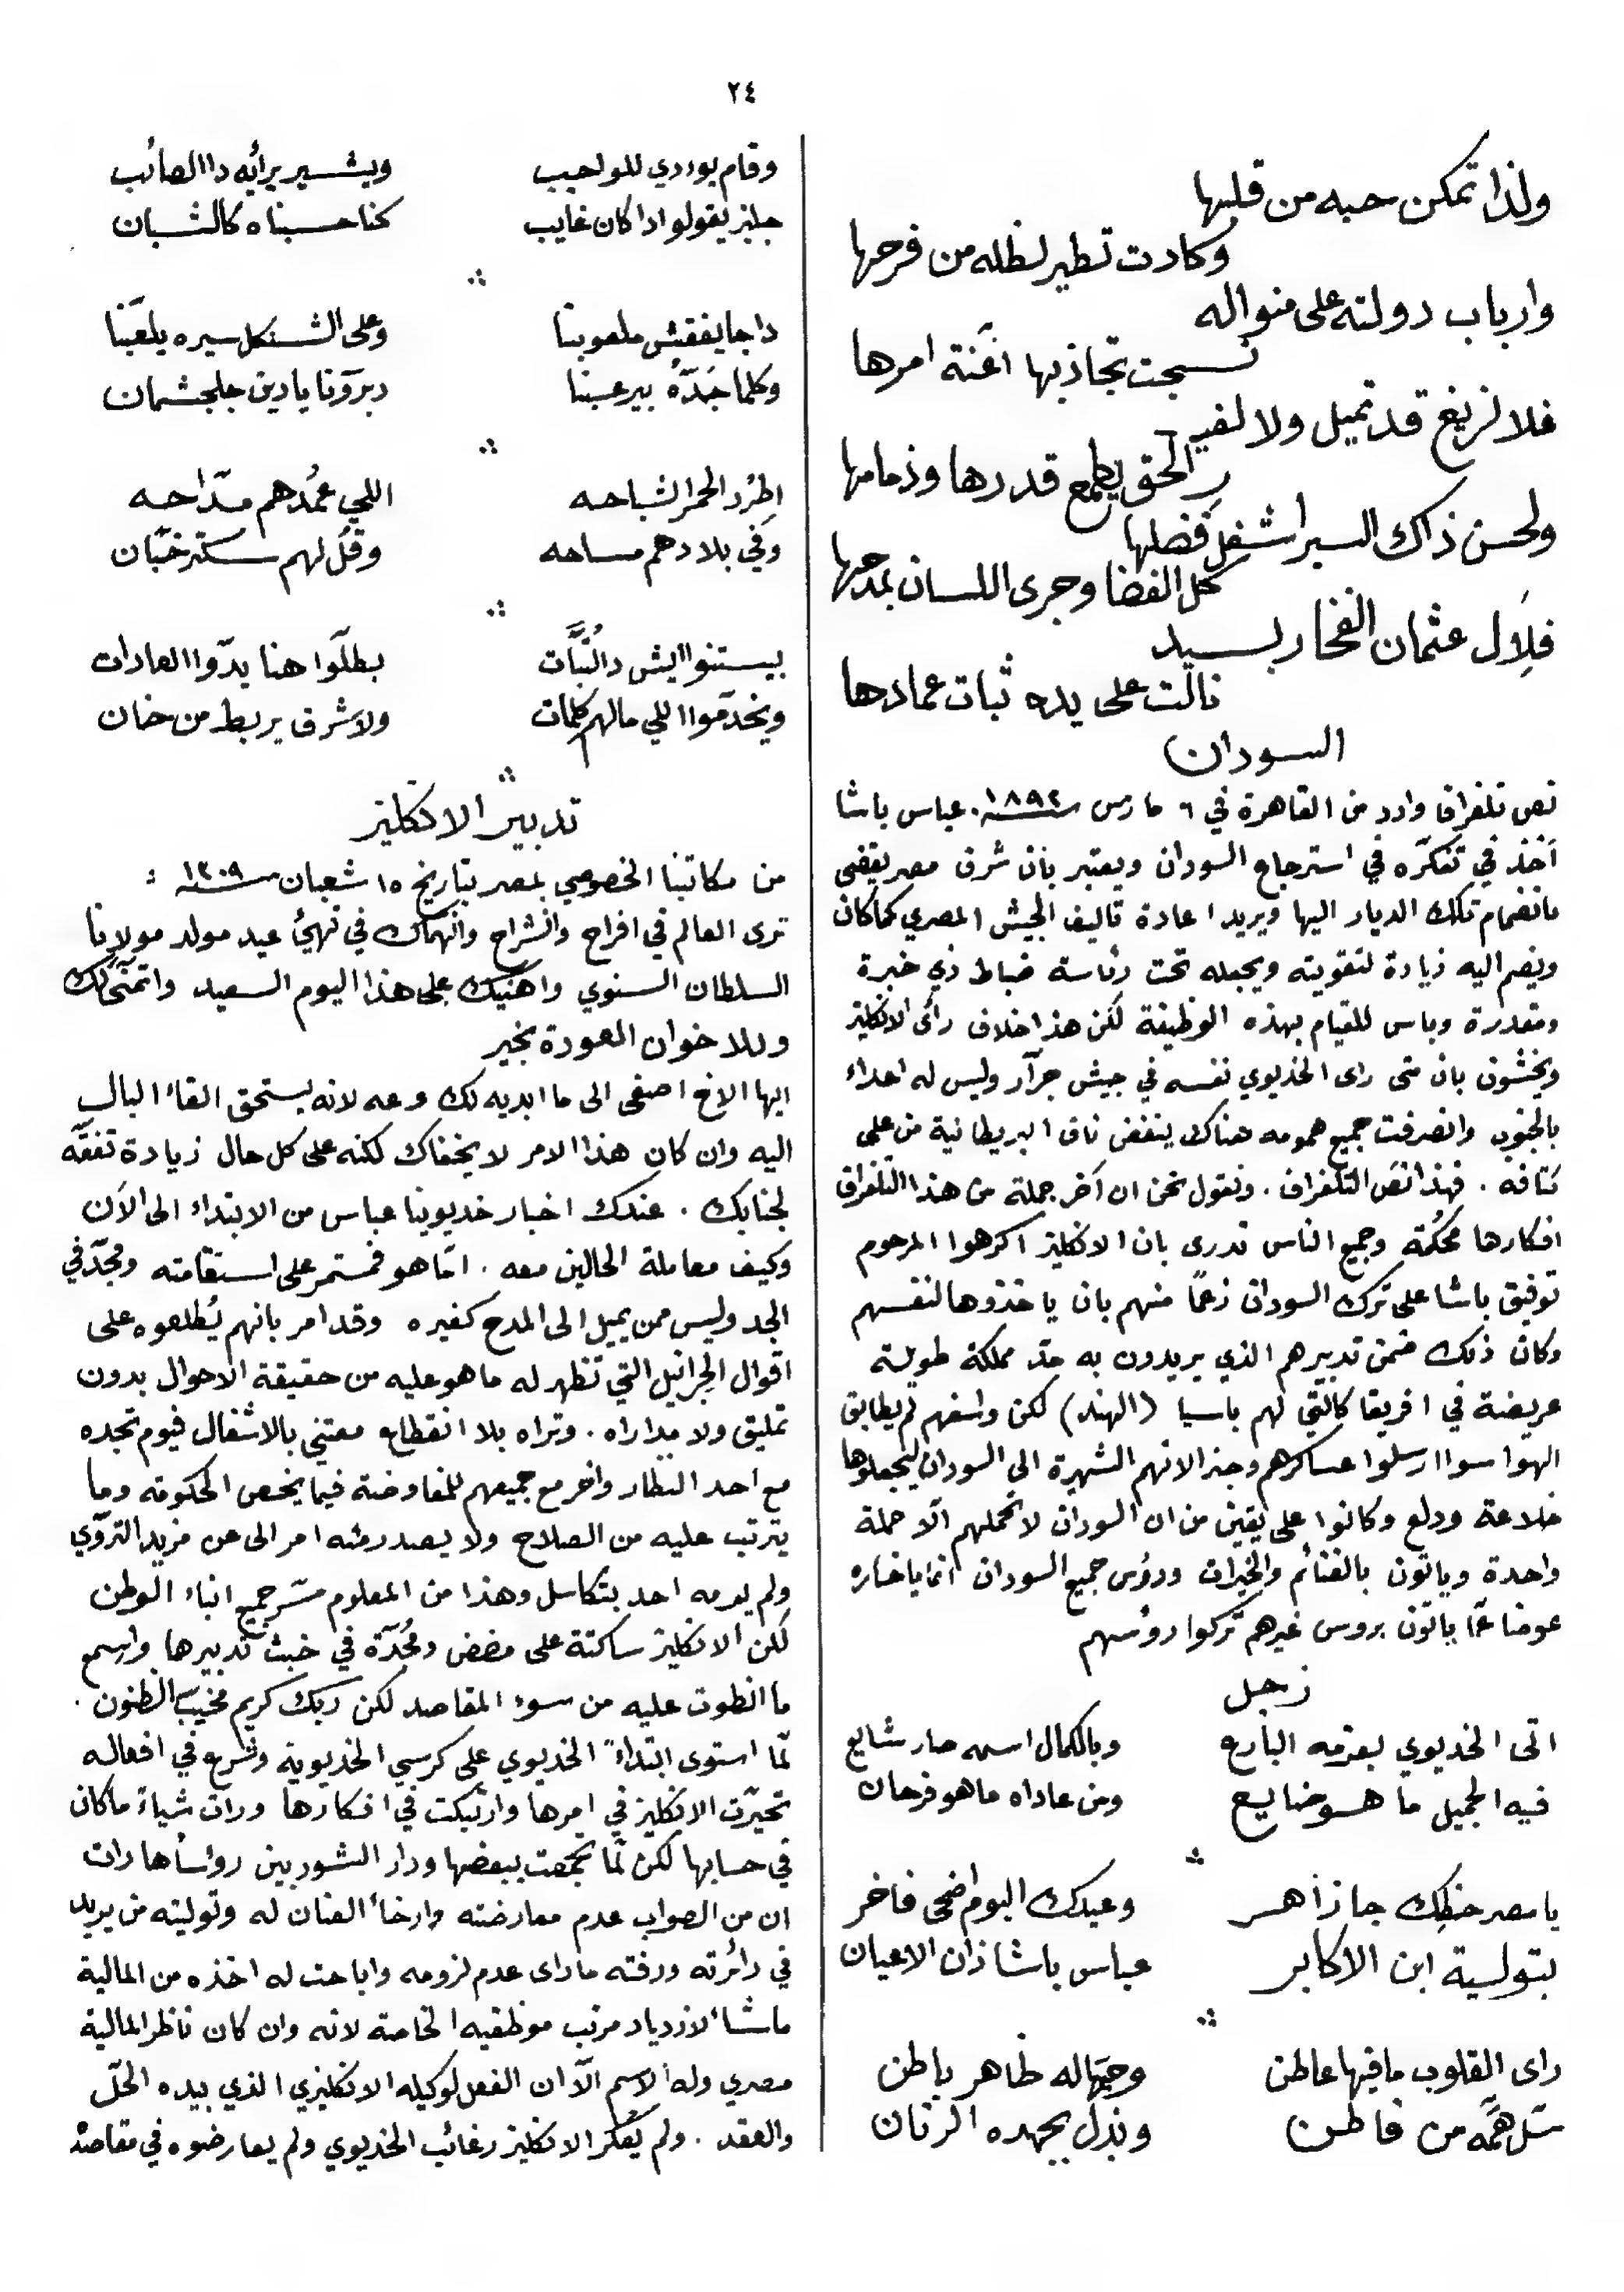 ٢٤
ولذا تمكن حبه من قلبها
وكادت تطير لظله من فرحها
وارباب دولته على منواله
نسجت تجاذبها اعنة امرها
فلا لزيغ قد تميل ولا لغيـ
ـر الحق يطمع قدرها وذمامها
ولحسن ذاك السير اشغل فضلها
كل الفضا وجرى اللسان بمدحها
فلِاَل عثمان الفخار بسيد
نالت على يده ثبات عمادها
السودان
نص تلغراف وارد من القاهرة في ٦ مارس سنة ١٨٩٢. عباس باشا
آخذ في تفكره في استرجاع السودان ويعتبر بان شرف مصر يقضى
بانضمام تلك الديار اليها ويريد اعادة تاليف الجيش المصري كما كان
ويضم اليه زيادة لتقويته ويجعله تحت رئاسة ضباط ذي خبرة
ومقدرة وباس للقيام بهذه الوظيفة لكن هذا خلاف راى الانكليز
ويخشون بان متى راى الخديوي نفسه في جيش جرآر وليس له اعداء
بالجنوب وانصرفت جميع همومه هناك ينفض ناف البريطانية من على
كتافه . فهذا نص التلغراف . ونقول نحن ان آخر جملة من هذا التلغراف
افكارها محكمة وجميع الناس تدرى بان الانكليز اكرهوا المرحوم
توفيق باشا على ترك السودان زعمًا منهم بان ياخذوها لنفسهم
وكان ذلك ضمن تدبيرهم الذي يريدون به مدّ مملكة طويلة
عريضة في افريقا كالتي لهم باسيا (الهند) لكن واسفهم لم يطابق
الهوا سوا ارسلوا عساكرهم وجنرالاتهم الشهيرة الى السودان ليجعلوها
خلاعة ودلع وكانوا على يقين من ان السودان لا تحملهم الّا حملة
واحدة وياتون بالغنائم والخيرات ورؤس جميع السودان انما ياخساره
عوضا عمّا ياتون بروس غيرهم تركوا رؤسهم
زجل
اتى الخديوي بعزمه البارع وبالكمال اسمه صار شايع
فيه الجميل ما هو ضايع ومن عاداه ما هو فرحان
يا مصر حظك جا زاهر وعيدك اليوم اضحى فاخر
بتولية ابن الاكابر عباس باشا زان الاعيان
راى القلوب ما فيها عاطن وحبها له ظاهر باطن
سَل همَّه من فاطن وبذل بجهده
وقام يوردي للواجب ويشير برأيه دا الصائب
جلينز يقولوا دا كان غايب كنا حسبناه كالشبان
دا جا يفقش ملعوبنا وعلى الشنكل سيره يلعّبنا
وكلما جَدّه بيرعبنا دبرّونا يا دين جلجشمان
اطرُد الحمر الشباحه اللي عمُدهم مدّاحه
وفي بلادهم مساحه وقلُ لهم سكتر خبّان
بيستنوا ايش دالنُبّات بطلّوا هنا يدّوا العادات
ويخدّموا اللي مالهم كلمات ولا شرف يربط من خان
تدبير الانكليز
من مكاتبنا الخصوصي بمصر بتاريخ ١٥ شعبان سنة ١٣٠٩ :
ترى العالم في افراح وانشراح وانهماك في تهيّئ عيد مولد مولانا
السلطان السنوي واهنيك على هذا اليوم السعيد واتمنى لك
وللاخوان العودة بخير
ايها الاخ اصغى الى ما ابديه لك وعه لانه يستحق القاء البال
اليه وان كان هذا الامر لا يخفاك لكنه على كل حال زيادة تفقّه
لجنابك . عندك اخبار خديوينا عباس من الابتداء الى الآن
وكيف معاملة الحالين معه . امّا هو فمستمر على استقامته ومجدّ في
الجد وليس ممن يميل الى المدح كغيره وقد امر بانهم يُطلعوه على
اقوال الجرانيل التي تظهر له ما هو عليه من حقيقة الاحوال بدون
تمليق ولا مداراه . وتراه بلا انقطاع معتني بالاشغال فيوم تجده
مع احد النظار واخر مع جميعهم للمفاوضة فيما يخص الحكومة وما
يترتب عليه من الصلاح ولا يصدر منه امر الى عن مزيد التروّي
ولم يرمه احد بتكاسل وهذا من المعلوم مسّر جميع ابناء الوطن
لكن الانكليز ساكتة على مضض ومُجدّة في خبث تدبيرها واسمع
ما انطوت عليه من سوء المقاصد لكن ربك كريم مخيّب الظنون .
لمّا استوى ابتداءً الخديوي على كرسي الخديوية وشرع في افعاله
تحيّرت الانكليز في امرها وارتبكت في افكارها ورات شياءً ما كان
في حسابها لكن لمّا تجمعت ببعضها ودار الشور بين رؤساها رات
ان من الصواب عدم معارضته وارخاء العنان له وتوليته من يريد
في دائرته ورفته ماراى عدم لزومه واباحت له اخذه من المالية
ماشاء لازدياد مرتب موظفيه الخاصة لانه وان كان ناظر المالية
مصري وله الاسم الّا ان الفعل لوكيله الانكليزي الذي بيده الحلّ
والعقد . ولم يُعكر الانكليز رغائب الخديوي ولم يعارضوه في مقاصده